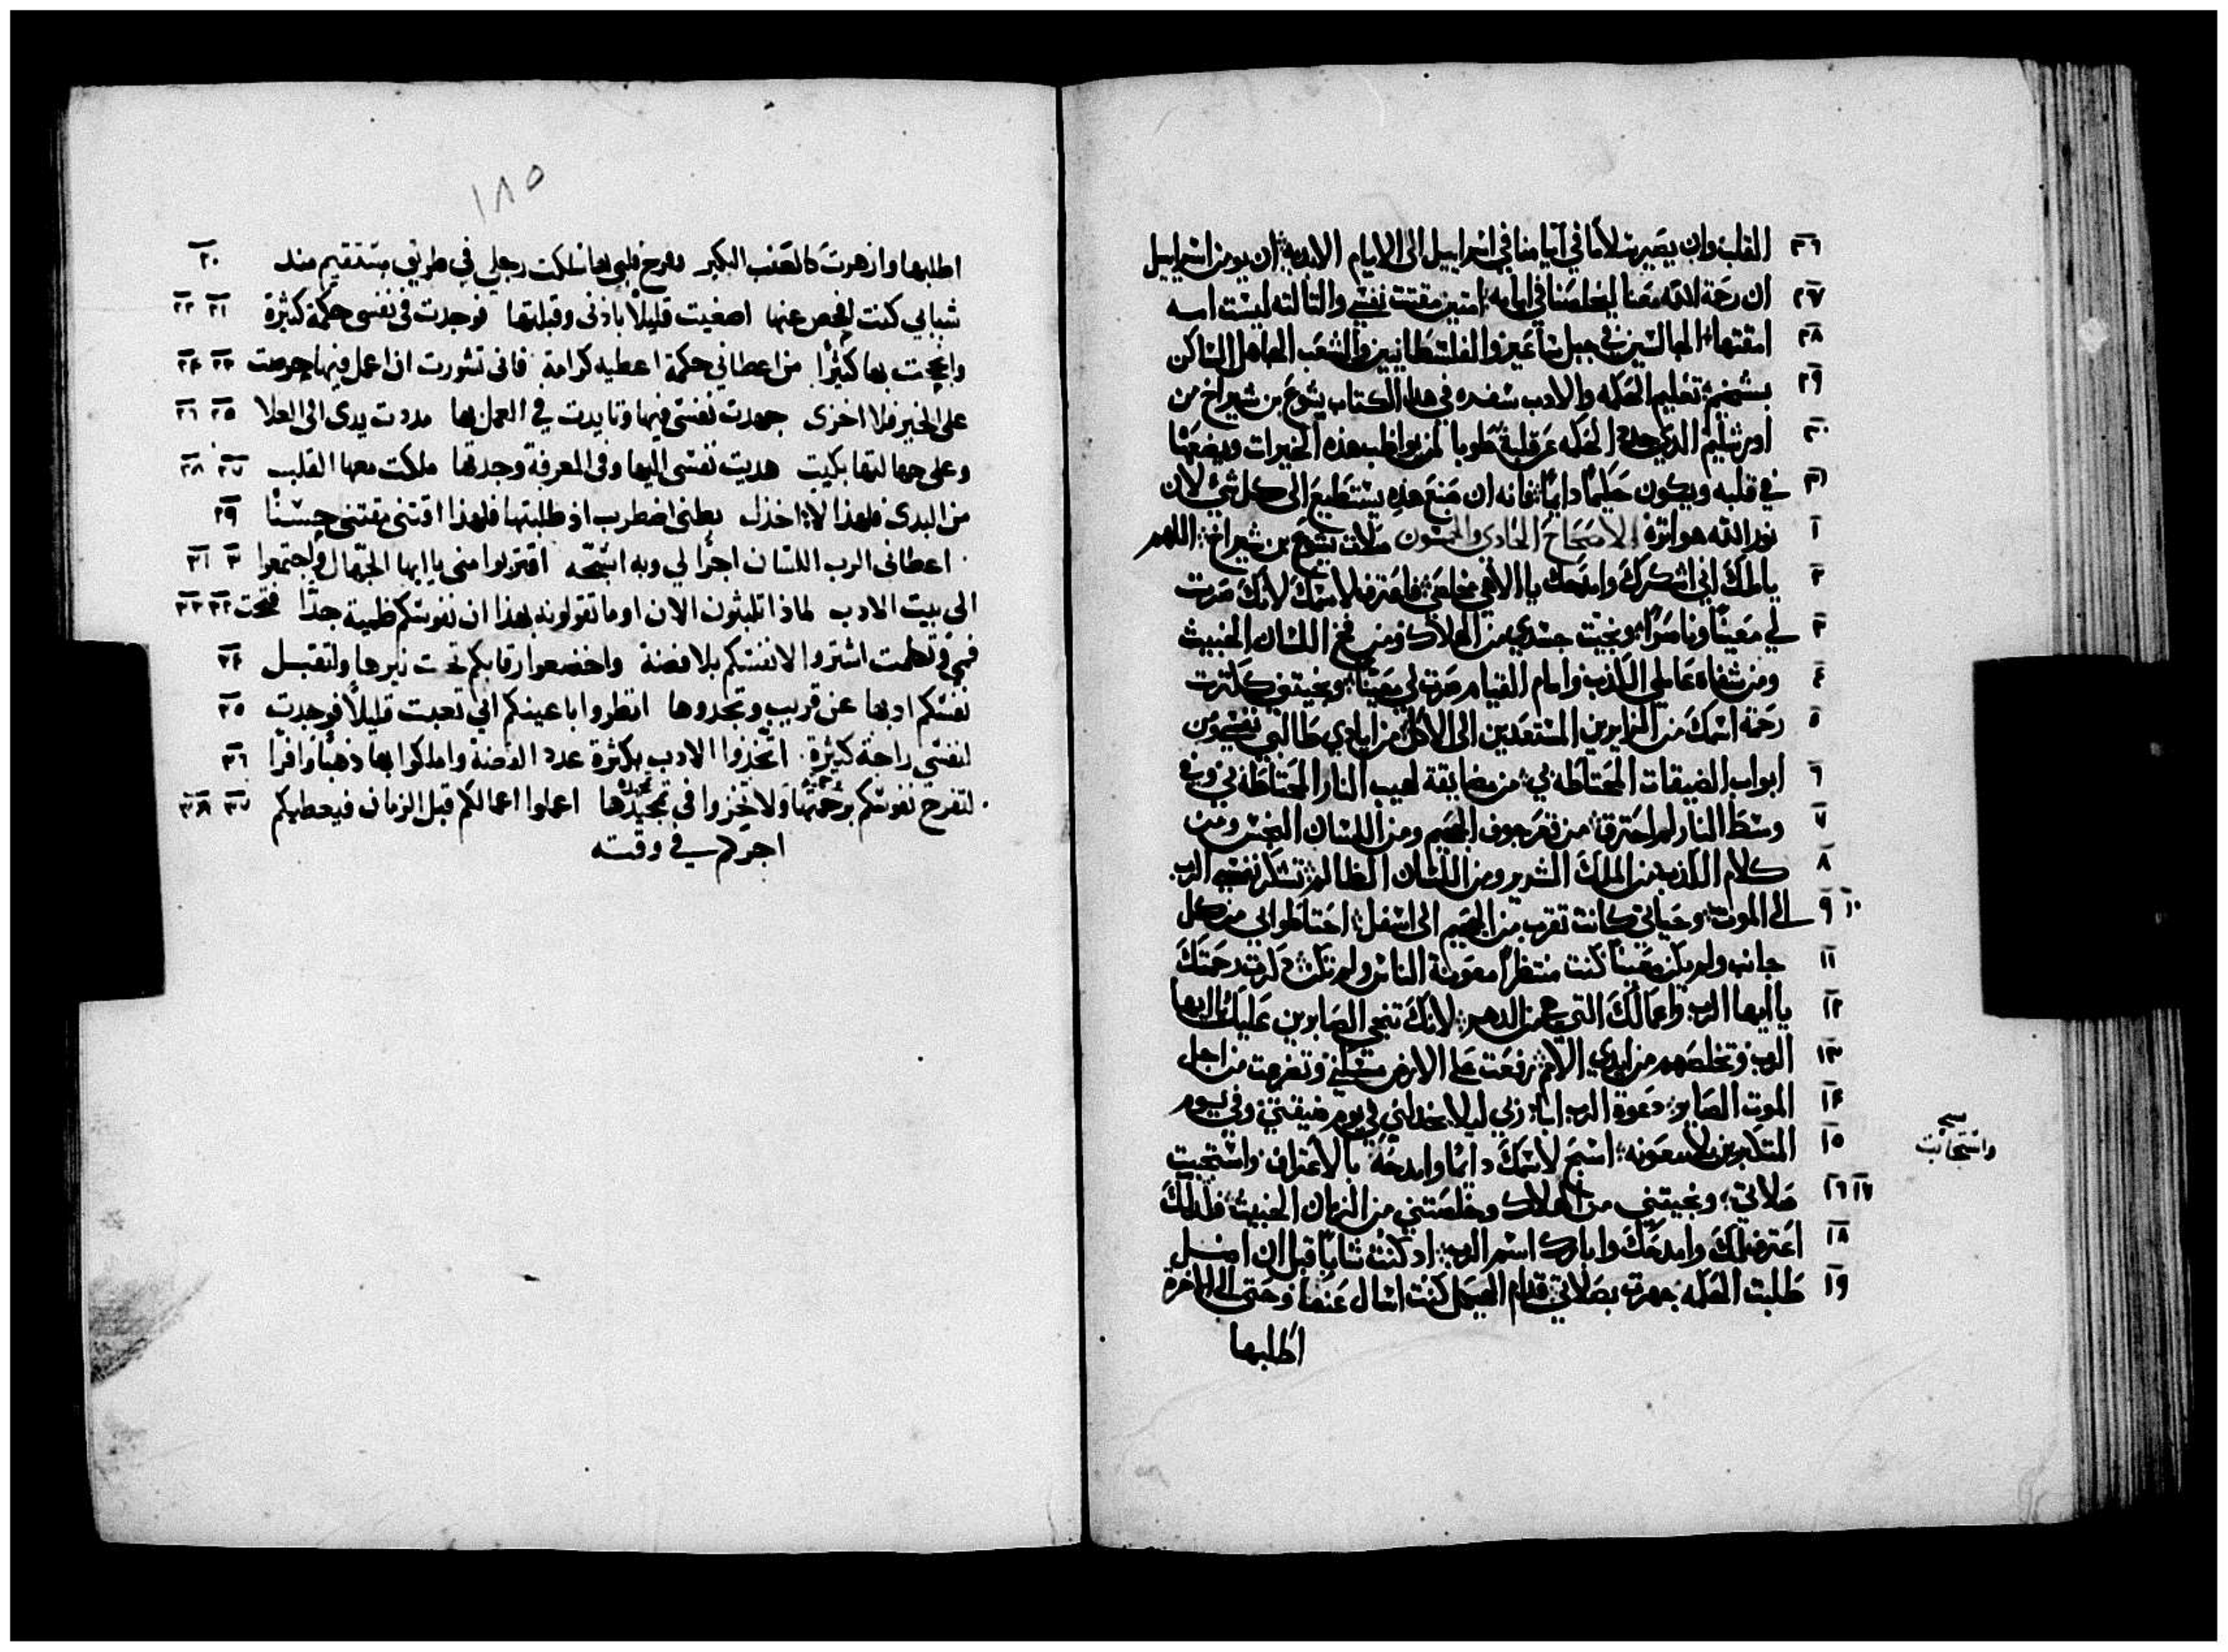 ٢٦ القلب وان يصير سلامًا في ايامنا في اسراييل الى الايام الابدية: ان يومن اسراييل
٢٧ ان رحمة الله معنا ليخلصنا في ايامه: امتين مقتت نفسي والتالته ليست امه
٢٨ امقتها: الجالسين في جبل ساعير والفلسطانيين والشعب الجاهل الساكن
٢٩ بشخيم: تعليم الحكمه والادب سفده في هذا الكتاب يشوع بن شيراخ من
٣٠ اورشليم الدي جدد الحكمه من قلبة طوبا لمن يواظب هذه الخيرات ويضعها
٣١ في قلبه ويكون حكيمًا دايمًا: فانه ان صنع هذه يستطيع الى كل شي لان
١ نور الله هو اثره الاصحاح الحادي والخمسون صلات يشوع بن شيراخ: اللهم
٢ يا ملك اني اشكرك وامدحك يا الاهي مخلصي: فاعترف لاسمك لانك صرت
٣ لي معينًا وناصرًا: ونجيت جسدي من الهلاك ومن فخ اللسان الخبيث
٤ ومن شفاه عاملي الكذب وامام القيام صرت لي معينًا: ونجيتني ككترت
٥ رحمة اسمك من الزايرين المستعدين الى الاكل: من ايادي طالبي نفسي ومن
٦ ابواب الضيقات المحتاطه بي: من مضايقة لهيب النار المحتاطه بي وفي
٧ وسط النار لم احترق: من قعر جوف الجحيم ومن اللسان النجس ومن
٨ كلام الكذب من الملك الشرير ومن اللسان الظالم: تشكر نفسي الرب
٩ ١٠ الى الموت: وحياتي كانت تقرب من الجحيم الى اسفل: احتاطوا بي من كل
١١ جانب ولم يكن معينًا كنت منتظرًا معونة الناس ولم تكن: دكرت رحمتك
١٢ يا ايها الرب واعمالك التي هي من الدهر: لانك تنجي الصابرين عليك يا ايها
١٣ الرب وتخلصهم من ايدي الامم: رفعت على الارض مسكني وتضرعت من اجل
١٤ الموت الصاير: دعوت الرب ابا ربي ليلا يخدلني في يوم ضيقتي وفي يوم
١٥ المتكبرين بلا معونه: اسبح لاسمك دايمًا وامدحه بالاعتراف واستجيبت
واستجابت
١٦ ١٧ صلاتي: ونجيتني من الهلاك وخلصتني من الزمان الخبيث: فلدلك
١٨ اعترف لك وامدحك وابارك اسم الرب: اد كنت شابًا قبل ان اضل
١٩ طلبت الحكمه جهرت بصلاتي: قدام الهيكل كنت اسال عنها وحتى الى الاخرة
اطلبها
١٨٥
اطلبها وازهرت كالعنب البكير تفرح قلبي بها سلكت رجلي في طريق مستقيم منذ ٢٠
شبابي كنت افحص عنها اصغيت قليلًا باذني وقبلتها فوجدت في نفسي حكمة كثيرة ٢١ ٢٢
وانجحت بها كثيرًا من اعطاني حكمة اعطيه كرامة فاني تشورت ان اعمل فيها حرصت ٢٣ ٢٤
على الخير فلا اخزى جهدت نفسي فيها وتايدت في العمل بها مددت يدي الى العلا ٢٥ ٢٦
وعلى جهالتها بكيت هديت نفسي اليها وفي المعرفة وجدتها ملكت معها القلب ٢٧ ٢٨
من البدى فلهذا لا اخذل بطني اضطرب اذ طلبتها فلهذا اقتني مقتنى حسنًا ٢٩
اعطاني الرب اللسان اجرًا لي وبه اسبحه اقتربوا مني يا ايها الجهال واجتمعوا ٣٠ ٣١
الى بيت الادب لماذا تلبثون الان او ما تقولونه بهذا ان نفوسكم ظمية جدًا فتحت ٣٢ ٣٣
فمي وتكلمت اشتروا لانفسكم بلا فضة واخضعوا رقابكم تحت نيرها ولتقبل ٣٤
نفسكم ادبها عن قريب وتجدوها انظروا باعينكم اني تعبت قليلًا فوجدت ٣٥
لنفسي راحة كثيرة اتخذوا الادب بكثرة عدد الفضة واملكوا بها ذهبًا وافرًا ٣٦
لتفرح نفوسكم برحمتها ولا تخزوا في تمجيدها اعملوا اعمالكم قبل الزمان فيعطيكم ٣٧ ٣٨
اجركم في وقته